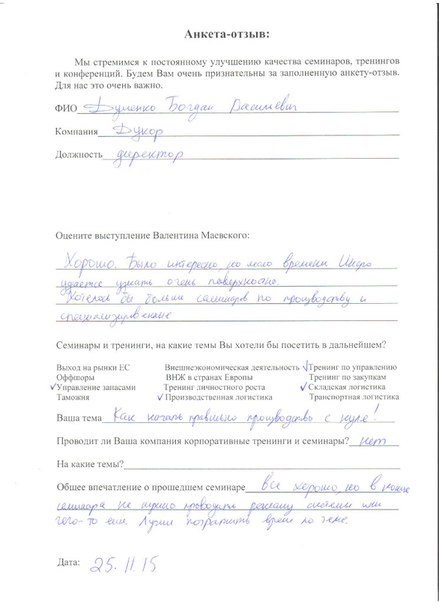 Анкета-отзыв:
Мы стремимся к постоянному улучшению качества семинаров, тренингов
и конференций. Будем Вам очень признательны за заполненную анкету-отзыв.
Для нас это очень важно.
ФИО Дуленко Богдан Васильевич
Компания Дукор
Должность директор
Оцените выступление Валентина Маевского:
Хорошо. Было интересно, но мало времени Инфо
удается узнать очень поверхностно
Хотелось бы больше семинаров по производству и
Семинары и тренинги, на какие темы Вы хотели бы посетить в дальнейшем?
Выход на рынки ЕС Внешнеэкономическая деятельность √Тренинг по управлению
Оффшоры ВНЖ в странах Европы Тренинг по закупкам
√Управление запасами Тренинг личностного роста √Складская логистика
Таможня √Производственная логистика Транспортная логистика
Ваша тема Как начать правильно производство с нуля!
Проводит ли Ваша компания корпоративные тренинги и семинары? нет
На какие темы?
Общее впечатление о прошедшем семинаре все хорошо, но в конце
семинара не нужно проводить рекламу системы или
чего-то еще. Лучше потратить время по теме.
Дата: 25.11.15